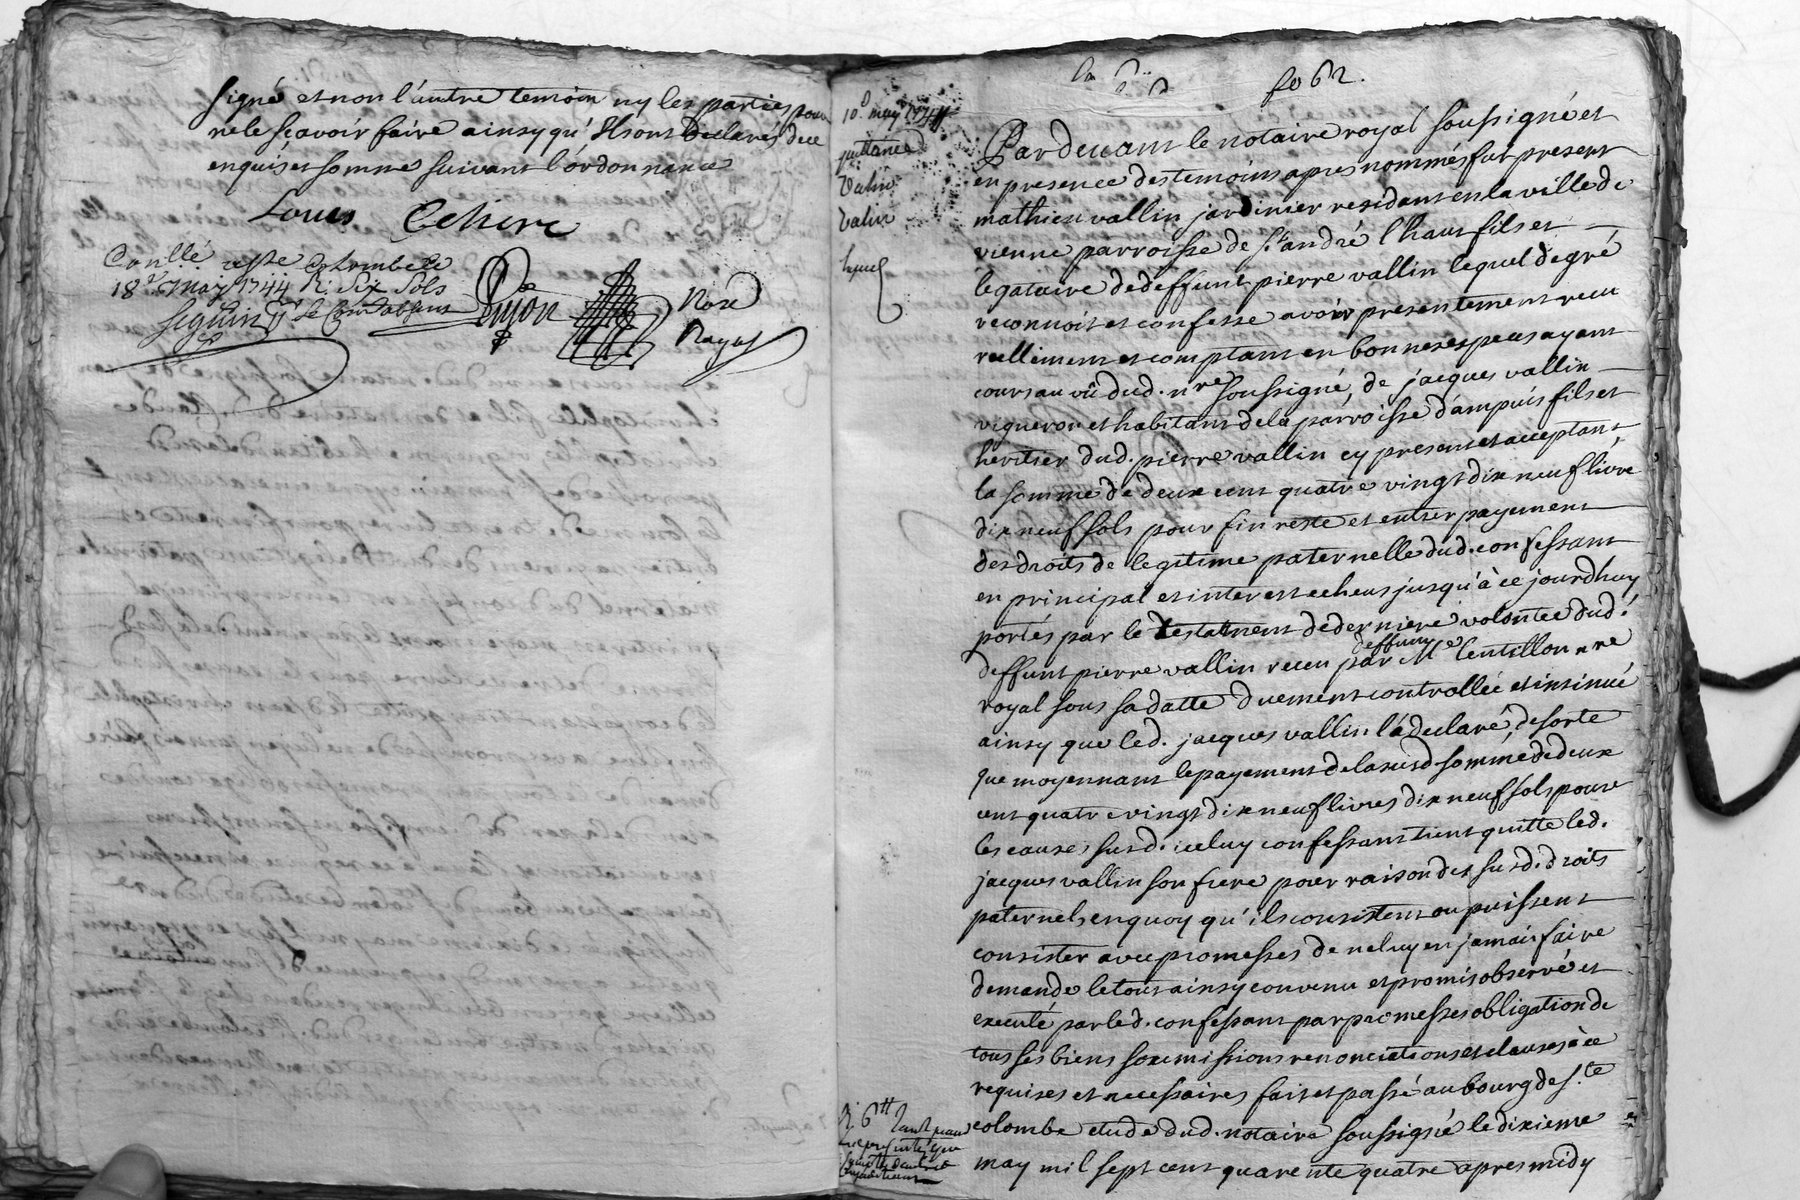 signé et non l'autre temoin ny les parties pour
ne le scavoir faire ainsy qu'Ils ont declarés de ce
enquis et somme suivant l'ordonnance
Louis
18e may 1744 Rx six sols
seguin
Pujon
Nore
Royal
fo 62.
10e may 1744
quittance
Valin
Valin
Pardevant le notaire royal soussigné et
en presence des temoins apres nommés fut present
mathieu vallin jardinier residant en la ville de
vienne parroisse de St andré l'haut fils et
legataire de deffunt pierre vallin lequel de gré
reconnoit et confesse avoir presentement receu
reellement et comptant en bonnes especes ayant
cours au vû dud. nre soussigné, de jacques vallin
vigneron et habitant de la parroisse d'ampuis fils et
heritier dud. pierre vallin cy present et acceptant,
la somme de deux cent quatre vingt dix neuf livre
dix neuf sols pour fin reste et entier payement
des droits de legitime paternelle dud. confessant
en principal et interest echeus jusqu'à ce jourdhuy
portés par le testament de derniere volontée dud.
deffunt
deffunt pierre vallin receu par Me lentillon nre
royal sous sa datte duement controllée et insinué
ainsy que led. jacques vallin l'a declaré, de sorte
que moyennant le payement de la susd somme de deux
cent quatre vingt dix neuf livres dix neuf sols pour
les causes susd. iceluy confessant tient quitte led.
jacques vallin son frere pour raison des susd. droits
paternels, en quoy qu'ils consistent ou puissent
consister avec promesses de ne luy en jamais faire
demande le tout ainsy convenu et promis observé et
executé par led. confessant par promesses obligation de
tous ses biens soumissions renonciations et clauses à ce
requises et necessaires fait et passé au bourg de Ste
colombe etude dud. notaire soussigné le dixieme
may mil sept cent quarente quatre apres midy